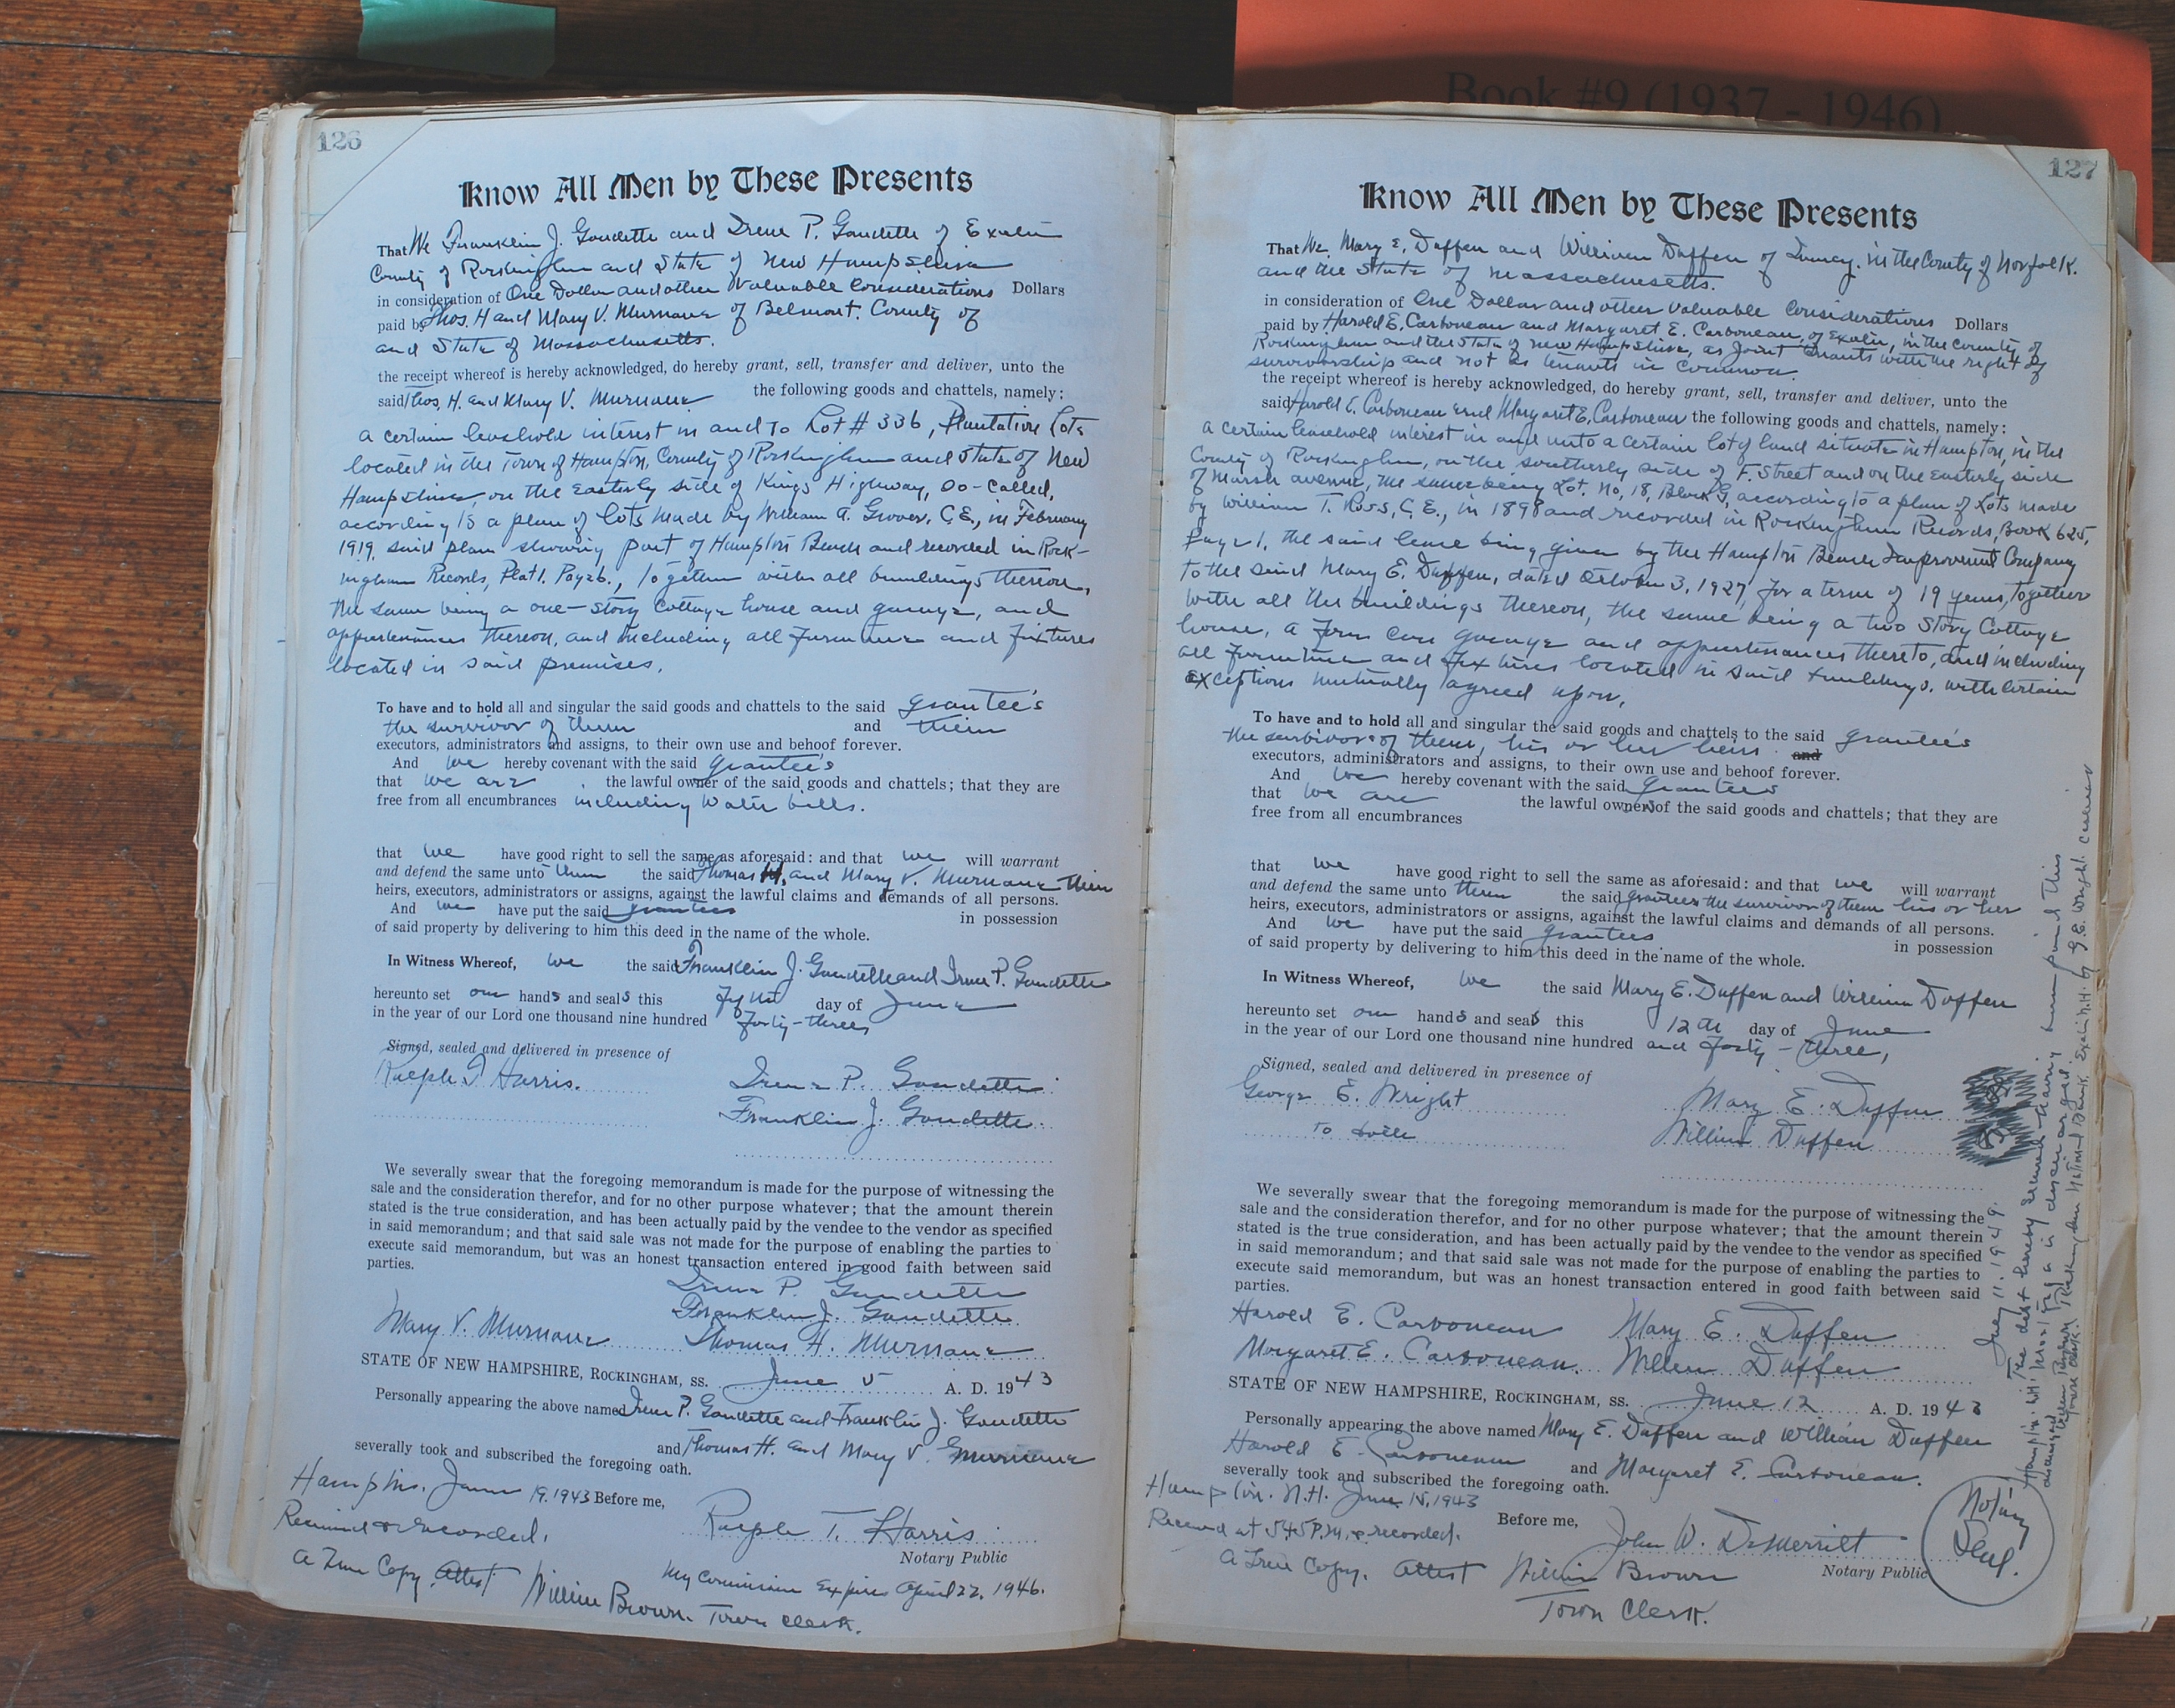 Book #9 (1937 - 1946)
126
Know All Men by These Presents
That We Franklin J. Gaudette and Irene P. Gaudette of Exeter
County of Rockingham and State of New Hampshire
in consideration of One Dollar and other Valuable Considerations Dollars
paid by Thos. H and Mary V. Murnane of Belmont. County of
and State of Massachusetts.
the receipt whereof is hereby acknowledged, do hereby grant, sell, transfer and deliver, unto the
said Thos. H. and Mary V. Murnane the following goods and chattels, namely:
a certain leasehold interest in and to Lot # 336, Plantation Lots
located in the Town of Hampton, County of Rockingham and State of New
Hampshire, on the Easterly side of Kings Highway, so-called,
according to a plan of lots made by William A. Grover, C.E., in February
1919, said plan showing part of Hampton Beach and recorded in Rock-
ingham Records, Plat 1. Page 6., together with all buildings thereon,
the same being a one-story Cottage house and garage, and
appurtenances thereon, and including all furniture and fixtures
located in said premises.
To have and to hold all and singular the said goods and chattels to the said grantee's
the survivor of them and their
executors, administrators and assigns, to their own use and behoof forever.
And we hereby covenant with the said grantee's
that we are the lawful owner of the said goods and chattels; that they are
free from all encumbrances including Water bills.
that we have good right to sell the same as aforesaid: and that we will warrant
and defend the same unto them the said Thomas H. and Mary V. Murnane their
heirs, executors, administrators or assigns, against the lawful claims and demands of all persons.
And we have put the said grantees in possession
of said property by delivering to him this deed in the name of the whole.
In Witness Whereof, we the said Franklin J. Gaudette and Irene P. Gaudette
hereunto set our hands and seals this day of June
in the year of our Lord one thousand nine hundred forty-three
Signed, sealed and delivered in presence of
Ralph T Harris. Irene P. Gaudette
Franklin J. Gaudette.
We severally swear that the foregoing memorandum is made for the purpose of witnessing the
sale and the consideration therefor, and for no other purpose whatever; that the amount therein
stated is the true consideration, and has been actually paid by the vendee to the vendor as specified
in said memorandum; and that said sale was not made for the purpose of enabling the parties to
execute said memorandum, but was an honest transaction entered in good faith between said
parties.
Irene P. Gaudette
Franklin J. Gaudette
Mary V. Murnane Thomas H. Murnane
STATE OF NEW HAMPSHIRE, ROCKINGHAM, SS. June 5 A. D. 1943
Personally appearing the above named Irene P. Gaudette and Franklin J. Gaudette
and Thomas H. and Mary V. Murnane
severally took and subscribed the foregoing oath.
Hampton. June 19, 1943 Before me,
Received & recorded. Ralph T. Harris
Notary Public
A True Copy. Attest My Commission Expires April 22, 1946.
William Brown. Town Clerk.
127
Know All Men by These Presents
That We Mary E. Duffen and William Duffen of Quincy, in the County of Norfolk.
and the State of Massachusetts.
in consideration of One Dollar and other Valuable Considerations Dollars
paid by Harold E. Carboneau and Margaret E. Carboneau, of Exeter, in the County of
Rockingham and the State of New Hampshire, as joint tenants with the right of
survivorship and not as tenants in common.
the receipt whereof is hereby acknowledged, do hereby grant, sell, transfer and deliver, unto the
said Harold E. Carboneau and Margaret E. Carboneau the following goods and chattels, namely:
a certain leasehold interest in and unto a certain lot of land situate in Hampton, in the
County of Rockingham, on the southerly side of F. Street and on the Easterly side
of Marsh avenue, the same being Lot. No, 18, Block G, according to a plan of Lots made
by William T. Ross, C.E., in 1898 and recorded in Rockingham Records, Book 625,
Page 1, the said lease being given by the Hampton Beach Improvement Company
to the said Mary E. Duffen, dated October 3, 1927, for a term of 19 years, together
with all the buildings thereon, the same being a two story Cottage
house, a four car garage and appurtenances thereto, and including
all furniture and fixtures located in said buildings. with certain
exceptions mutually agreed upon.
To have and to hold all and singular the said goods and chattels to the said grantee's
the survivor of them, his or her heirs and
executors, administrators and assigns, to their own use and behoof forever.
And we hereby covenant with the said grantees
that we are the lawful owners of the said goods and chattels; that they are
free from all encumbrances
that we have good right to sell the same as aforesaid: and that we will warrant
and defend the same unto them the said grantees the survivor of them his or her
heirs, executors, administrators or assigns, against the lawful claims and demands of all persons.
And we have put the said grantees in possession
of said property by delivering to him this deed in the name of the whole.
In Witness Whereof, we the said Mary E. Duffen and William Duffen
hereunto set our hands and seals this 12th day of June
in the year of our Lord one thousand nine hundred and forty-three,
Signed, sealed and delivered in presence of
George E. Wright Mary E. Duffen
to both William Duffen
We severally swear that the foregoing memorandum is made for the purpose of witnessing the
sale and the consideration therefor, and for no other purpose whatever; that the amount therein
stated is the true consideration, and has been actually paid by the vendee to the vendor as specified
in said memorandum; and that said sale was not made for the purpose of enabling the parties to
execute said memorandum, but was an honest transaction entered in good faith between said
parties.
Harold E. Carboneau Mary E. Duffen
Margaret E. Carboneau. William Duffen
STATE OF NEW HAMPSHIRE, ROCKINGHAM, SS. June 12 A. D. 1943
Personally appearing the above named Mary E. Duffen and William Duffen
Harold E Carboneau and Margaret E. Carboneau.
severally took and subscribed the foregoing oath.
Hampton. N.H. June 15, 1943
Received at 5 45 P.M. & recorded. Before me,
John W. DeMerritt
Notary Public
A True Copy. Attest William Brown
Town Clerk.
Notary
Seal.
Hampton. N.H. July 11. 1949
The debt hereby secured having been paid this
is discharged.
National Bank, Exeter N.H. by G.E. Wright Cashier
William Brown
Town Clerk.